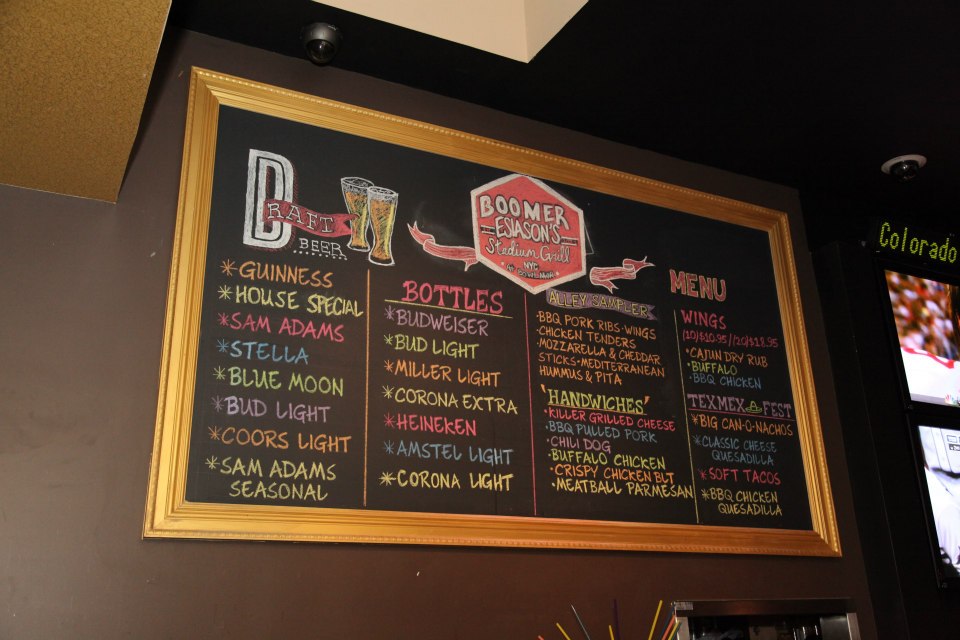 DRAFT
BEER
*GUINNESS
*HOUSE SPECIAL
*SAM ADAMS
*STELLA
*BLUE MOON
*BUD LIGHT
*COORS LIGHT
*SAM ADAMS
SEASONAL
BOTTLES
*BUDWEISER
*BUD LIGHT
*MILLER LIGHT
*CORONA EXTRA
*HEINEKEN
*AMSTEL LIGHT
*CORONA LIGHT
BOOMER
ESIASON'S
Stadium Grill
NYC
ALLEY SAMPLER
·BBQ PORK RIBS·WINGS
·CHICKEN TENDERS
·MOZZARELLA & CHEDDAR
STICKS·MEDITERRANEAN
HUMMUS & PITA
'HANDWICHES'
·KILLER GRILLED CHEESE
·BBQ PULLED PORK
·CHILI DOG
·BUFFALO CHICKEN
·CRISPY CHICKEN BLT
·MEATBALL PARMESAN
MENU
WINGS
(10)$10.95//(20)$18.95
·CAJUN DRY RUB
·BUFFALO
·BBQ CHICKEN
TEXMEX FEST
*BIG CAN-O-NACHOS
*CLASSIC CHEESE
QUESADILLA
*SOFT TACOS
*BBQ CHICKEN
QUESADILLA
Colorado